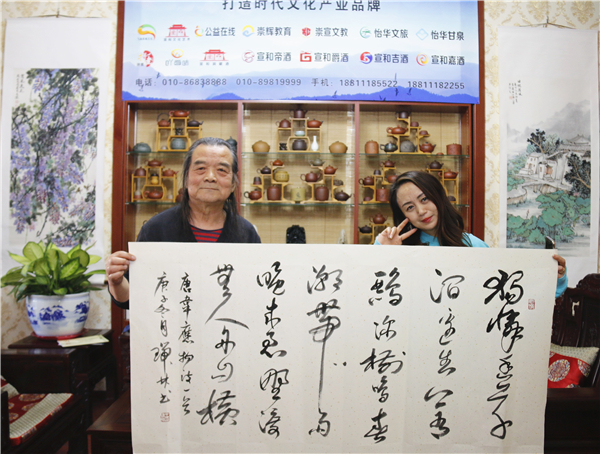 打造时代文化产业品牌
公益在线 崇辉教育 崇宣文教 怡华文旅 怡华甘泉
宣和帝酒 宣和爵酒 宣和吉酒 宣和嘉酒
电话：010-86838888 010-89819999 手机：18811185522 18811182255
獨憐幽草
澗邊生上有黄
鸝深樹鳴春
潮帶雨
晚来急野渡
無人舟自橫
唐韋應物诗一首
庚子冬月瑞林书